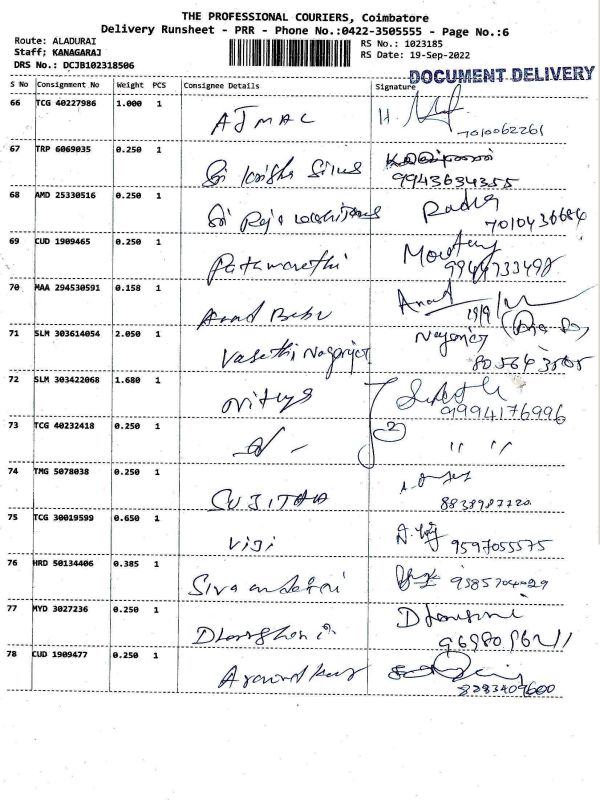 THE PROFESSIONAL COURIERS, Coimbatore
Delivery Runsheet - PRR - Phone No.:0422-3505555 - Page No.:6
Route: ALADURAI
Staff; KANAGARAJ
DRS No.: DCJB102318506
RS No.: 1023185
RS Date: 19-Sep-2022
DOCUMENT DELIVERY
S No Consignment No Weight PCS Consignee Details Signature
66 TCG 40227986 1.000 1 AJMAL H.
7010062261
67 TRP 6069035 0.250 1 Sri Krisha Silus
9943634355
68 AMD 25330516 0.250 1 Sri Raja Radha
7010436684
69 CUD 1909465 0.250 1
9944733498
70 MAA 294530591 0.158 1 Anand Babu Anand
19/9
71 SLM 303614054 2.050 1 Vasathi Nagarajan Nagaraj
72 SLM 303422068 1.680 1 Nithya
9994176996
73 TCG 40232418 0.250 1 2 " "
74 TMG 5078038 0.250 1 SUJITHA
8838987720
75 TCG 30019599 0.650 1 Viji
9597055575
76 HRD 50134406 0.385 1 9585704029
77 MYD 3027236 0.250 1
78 CUD 1909477 0.250 1 Aravind Kumar
8283409600